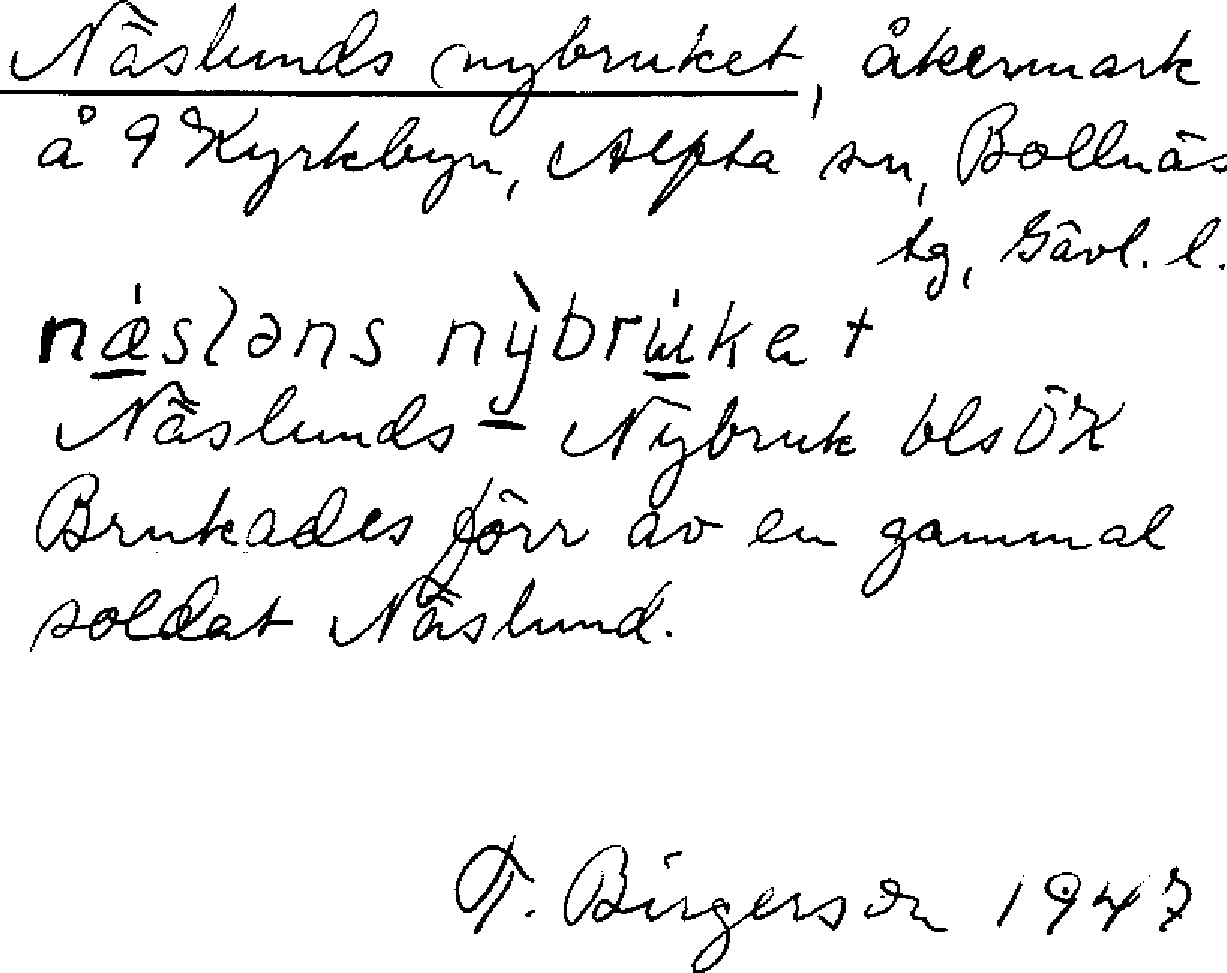 Näslunds nybruket, åkermark
å 9 Kyrkbyn, Alfta sn, Bollnäs
tg, Gävl. l.
næslǝns nỳbrʉkat
Näslunds-Nybruk bls ÖK
Brukades förr av en gammal
soldat Näslund.
T. Birgerson 1947